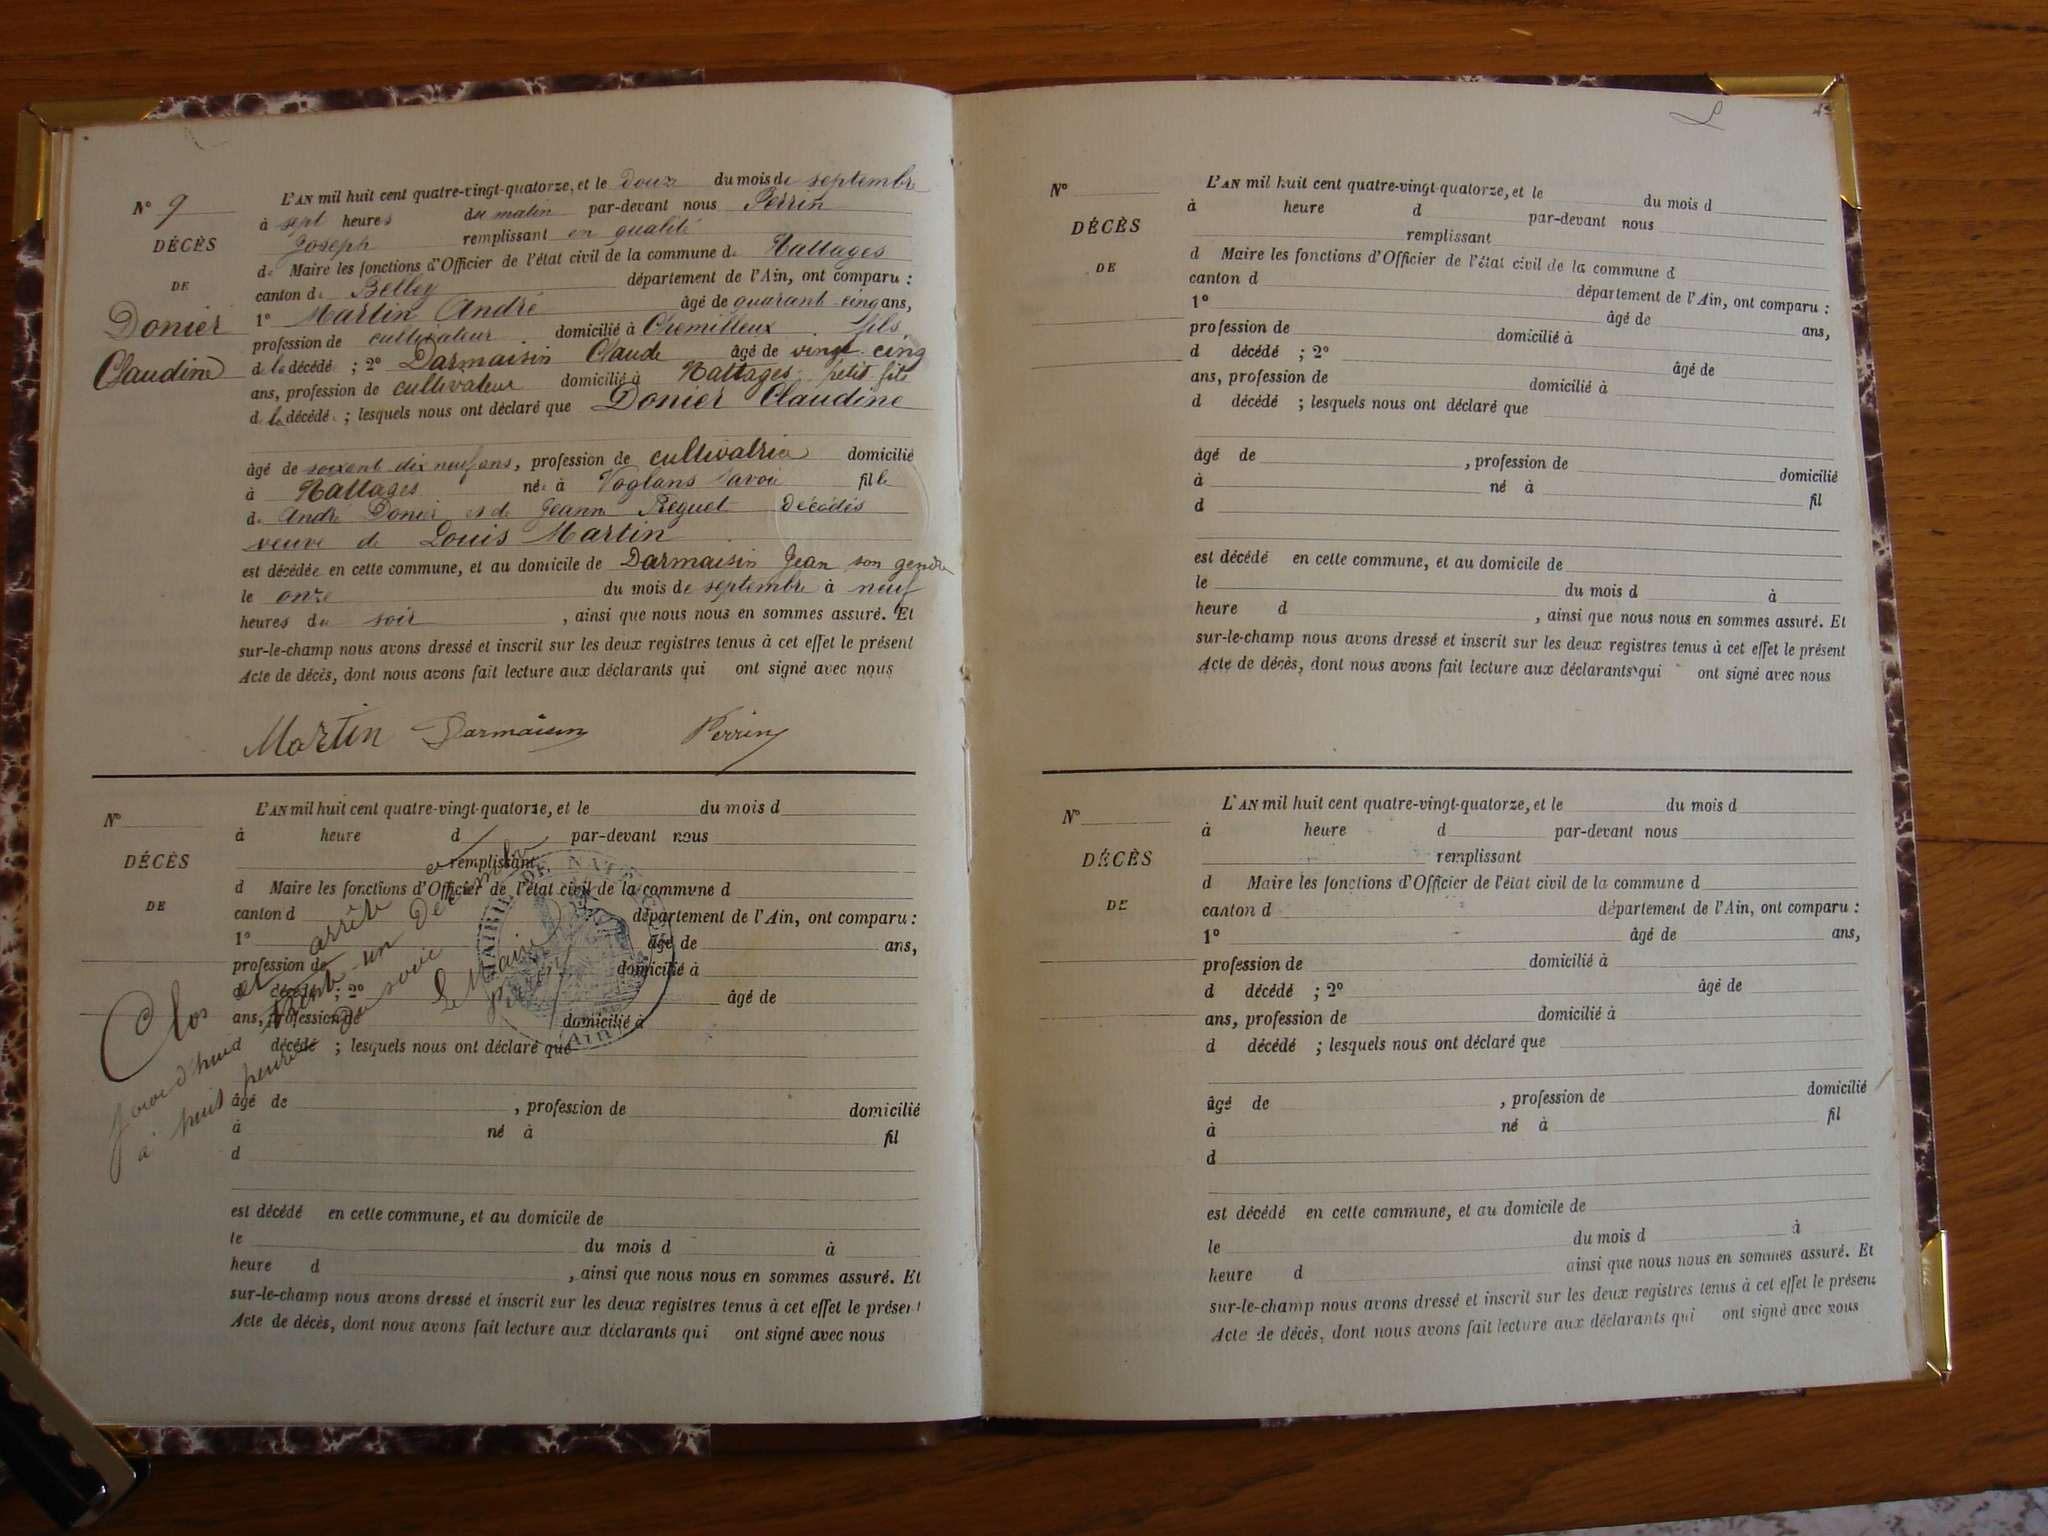 N° 9
DÉCÈS
DE
Donier
Claudine
L'AN mil huit cent quatre-vingt-quatorze, et le douz du mois de septembre
à sept heures du matin par-devant nous Perrin
Joseph remplissant en qualité
de Maire les fonctions d'Officier de l'état civil de la commune de Nattages
canton de Belley département de l'Ain, ont comparu :
1° Martin André âgé de quarant-cinq ans,
profession de cultivateur domicilié à Chemilleux fils
de la décédé ; 2° Darmaisin Claude âgé de vingt-cinq
ans, profession de cultivateur domicilié à Nattages petit fils
de la décédé ; lesquels nous ont déclaré que Donier Claudine
âgé de soixant dix neuf ans, profession de cultivatrice domicilié
à Nattages née à Voglans Savoie fille
de André Donier et de Jeann Reguet Décédés
veuve de Louis Martin
est décédée en cette commune, et au domicile de Darmaisin Jean son gendre
le onze du mois de septembre à neuf
heures du soir , ainsi que nous nous en sommes assuré. Et
sur-le-champ nous avons dressé et inscrit sur les deux registres tenus à cet effet le présent
Acte de décès, dont nous avons fait lecture aux déclarants qui ont signé avec nous
Martin Darmaisin Perrin
N°
DÉCÈS
DE
L'AN mil huit cent quatre-vingt-quatorze, et le du mois d
à heure d par-devant nous
remplissant
d Maire les fonctions d'Officier de l'état civil de la commune d
canton d département de l'Ain, ont comparu :
1° âgé de ans,
profession de domicilié à
d décédé ; 2° âgé de
ans, profession de domicilié à
d décédé ; lesquels nous ont déclaré que
âgé de , profession de domicilié
à né à fil
d
est décédé en cette commune, et au domicile de
le du mois d à
heure d , ainsi que nous nous en sommes assuré. Et
sur-le-champ nous avons dressé et inscrit sur les deux registres tenus à cet effet le présent
Acte de décès, dont nous avons fait lecture aux déclarants qui ont signé avec nous
Clos et arrêté
jourd'hui un Décembre
à huit heures du soir
le Maire
Perrin
AIN
N°
DÉCÈS
DE
L'AN mil huit cent quatre-vingt-quatorze, et le du mois d
à heure d par-devant nous
remplissant
d Maire les fonctions d'Officier de l'état civil de la commune d
canton d département de l'Ain, ont comparu :
1° âgé de ans,
profession de domicilié à
d décédé ; 2° âgé de
ans, profession de domicilié à
d décédé ; lesquels nous ont déclaré que
âgé de , profession de domicilié
à né à fil
d
est décédé en cette commune, et au domicile de
le du mois d à
heure d , ainsi que nous nous en sommes assuré. Et
sur-le-champ nous avons dressé et inscrit sur les deux registres tenus à cet effet le présent
Acte de décès, dont nous avons fait lecture aux déclarants qui ont signé avec nous
N°
DÉCÈS
DE
L'AN mil huit cent quatre-vingt-quatorze, et le du mois d
à heure d par-devant nous
remplissant
d Maire les fonctions d'Officier de l'état civil de la commune d
canton d département de l'Ain, ont comparu :
1° âgé de ans,
profession de domicilié à
d décédé ; 2° âgé de
ans, profession de domicilié à
d décédé ; lesquels nous ont déclaré que
âgé de , profession de domicilié
à né à fil
d
est décédé en cette commune, et au domicile de
le du mois d à
heure d ainsi que nous nous en sommes assuré. Et
sur-le-champ nous avons dressé et inscrit sur les deux registres tenus à cet effet le présent
Acte de décès, dont nous avons fait lecture aux déclarants qui ont signé avec nous